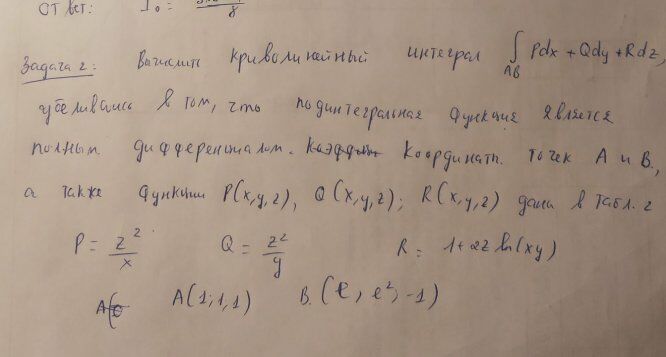 Ответ: I₀ =
Задача 2: Вычислить криволинейный интеграл ∫ Pdx + Qdy + Rdz,
AB
убедившись в том, что подинтегральная функция является
полным дифференциалом. Координаты точек A и B,
а также функции P(x,y,z), Q(x,y,z); R(x,y,z) дана в табл. 2
P = z²/x Q = z²/y R = 1+2z ln(xy)
A(1;1,1) B. (e, e², -1)